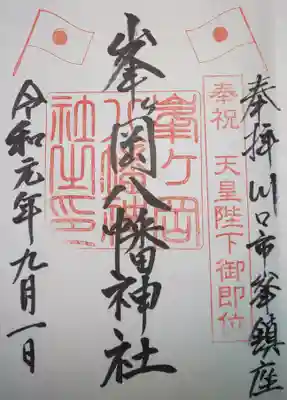 奉拝 川口市峯鎮座
奉祝 天皇陛下御即位
峯ヶ岡八幡神社
峯ヶ岡八幡神社之印
令和元年九月一日